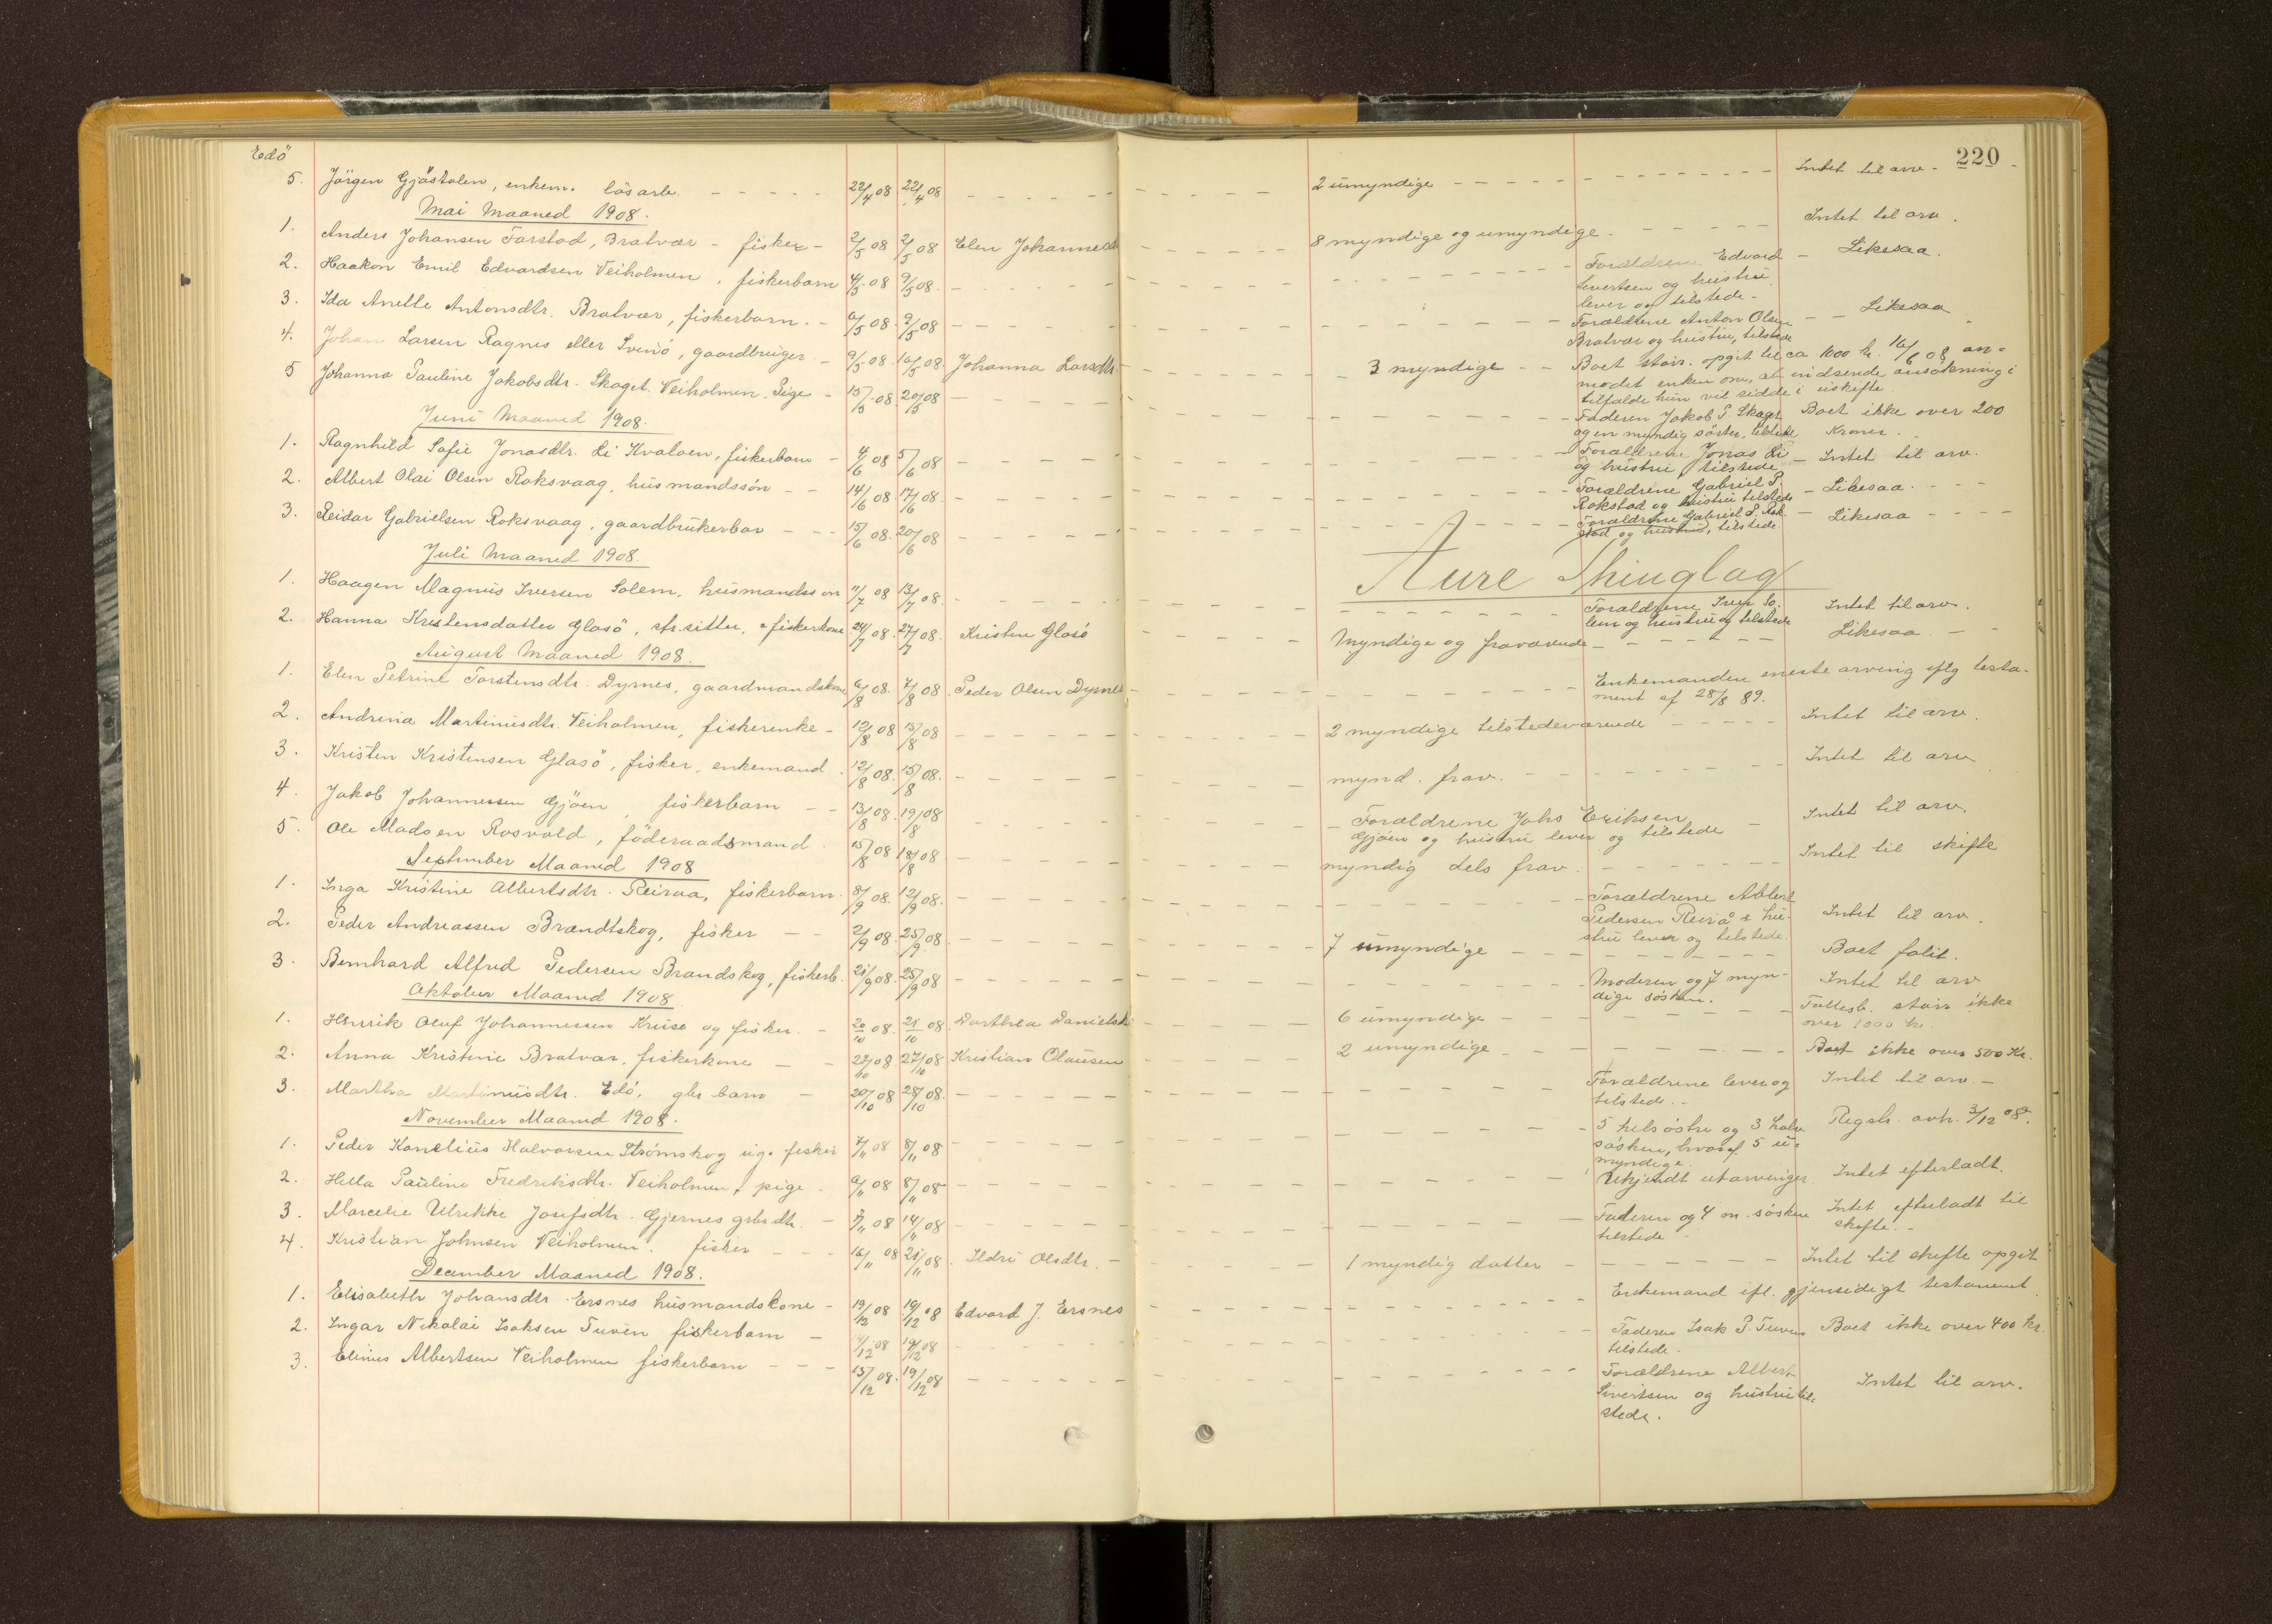 Edö
220
5. Jörgen Gjöstølen, enkem. lösarb. 22/4 08 22/4 08 2 umyndige Intet til arv.
Mai Maaned 1908.
1. Anders Johansen Forstad, Bratvær - fisker - 2/5 08 2/5 08 Elen Johannesd 8 myndige og umyndige. Intet til arv.
2. Haakon Emil Edvardsen Veiholmen, fiskerbarn 4/5 08 9/5 08. Forældrene Edvard Likesaa.
Sivertsen og hustru
lever og tilstede.
3. Ida Anette Antonsdtr. Bratvær, fiskerbarn. 6/5 08. 9/5 08 Forældrene Anton Olsen Likesaa
Bratvær og hustru, tilstede
4. Johan Larsen Ragnes eller Svenö, gaardbruger 9/5 08. 10/5 08. Johanna Larsdtr. 3 myndige Boet stair. opgit til ca. 1000 kr. 16/6 08 an-
modet enken om, at indsende ansökning i
tilfælde hun vil sidde i uskifte.
5 Johanna Pauline Jakobsdtr. Skaget. Veiholmen. Pige 15/5 08. 20/5 08 Faderen Jakob P. Skaget Boet ikke over 200
og en myndig söster, tilstede Kroner.
Juni Maaned 1908.
1. Ragnhild Sofie Jonasdtr. Li Kvaloen, fiskerbarn 4/6 08 5/6 08 Forældrene Jonas Li Intet til arv.
og hustru tilstede
2. Albert Olai Olsen Roksvaag, husmandssön 14/6 08. 17/6 08. Forældrene Gabriel P. Likesaa.
Rokstad og hustru tilstede
3. Reidar Gabrielsen Roksvaag, gaardbrukerbar 15/6 08. 20/6 08 Forældrene Gabriel P. Rok Likesaa
stad og hustru, tilstede
Juli Maaned 1908.
Aure Thinglag
1. Haagen Magnus Iversen Solem, husmandsson 11/7 08 13/7 08. Forældrene Iver So- Intet til arv.
lem og hustru og tilstede
2. Hanna Kristensdatter Glasö, str.sitter, fiskerkone 24/7 08. 27/7 08. Kristen Glasö Myndige og fraværende Likesaa.
August Maaned 1908.
1. Elen Petrine Torstensdtr. Dyrnes, gaardmandskone 6/8 08. 7/8 08. Peder Olsen Dyrnes Enkemanden eneste arving eftg testa-
ment af 28/8 89.
2. Andrina Martinusdtr. Veiholmen, fiskerenke 12/8 08 15/8 08 2 myndige tilstedeværende Intet til arv.
3. Kristen Kristensen Glasö, fisker, enkemand 12/8 08. 15/8 08. mynd. frav. Intet til arv
4. Jakob Johannessen Gjöen, fiskerbarn 13/8 08. 19/8 08 Forældrene Johs Eriksen Intet til arv.
Gjöen og hustru lever og tilstede
5. Ole Madsen Rosvold, föderaadsmand 15/8 08 18/8 08 myndig dels frav. Intet til skifte
September Maaned 1908
1. Inga Kristine Albertsdtr. Reiraa, fiskerbarn. 8/9 08. 12/9 08. Forældrene Albert Intet til arv.
Pedersen Reirå & hu-
stru lever og tilstede.
2. Peder Andreassen Brændtskog, fisker 2/9 08. 25/9 08. 7 umyndige Boet falit.
3. Bernhard Alfred Pedersen Brandskog, fiskerb. 21/9 08. 25/9 08 Moderen og 7 myn- Intet til arv
dige søsken.
Oktober Maaned 1908
1. Henrik Oluf Johannessen Kruse og fisker. 20/10 08. 21/10 08. Dorthea Danielsd 6 umyndige Fællesb. stair ikke
over 1000 kr.
2. Anna Kristine Bratvær, fiskerkone 27/10 08. 27/10 08 Kristian Olausen 2 umyndige Boet ikke over 500 Kr.
3. Martha Martinusdtr. Edö, gbr barn 20/10 08 28/10 08. Forældrene lever og Intet til arv.
tilstede.
November Maaned 1908.
1. Peder Kornelius Halvorsen Strømskog ug. fisker 7/11 08 8/11 08 5 helsøstre og 3 halv Regstr. avh. 3/12 08.
søsken, hvoraf 5 u-
myndige.
2. Hella Pauline Fredriksdtr. Veiholmen, pige. 6/11 08 8/11 08 Ukjendt utarvinger Intet efterladt.
3. Marcelie Ulrikke Josefsdtr. Gjernes gbr.dtr. 7/11 08 14/11 08 Faderen og 4 m. søsken Intet efterladt til
tilstede skifte.
4. Kristian Johnsen Veiholmen. fisker 16/11 08 21/11 08. Ildri Olsdtr. 1 myndig datter Intet til skifte opgit
December Maaned 1908.
1. Elisabeth Johansdtr. Ersnes husmandskone 19/12 08 19/12 08 Edvard J. Ersnes Enkemand ifl. gjensidigt testament.
2. Ingar Nikolai Isaksen Tuven fiskerbarn 14/12 08 19/12 08 Faderen Isak P. Tuven Boet ikke over 400 kr.
tilstede.
3. Elinus Albertsen Veiholmen fiskerbarn 15/12 08. 19/12 08 Forældrene Albert Intet til arv.
Sivertsen og hustru til-
stede.